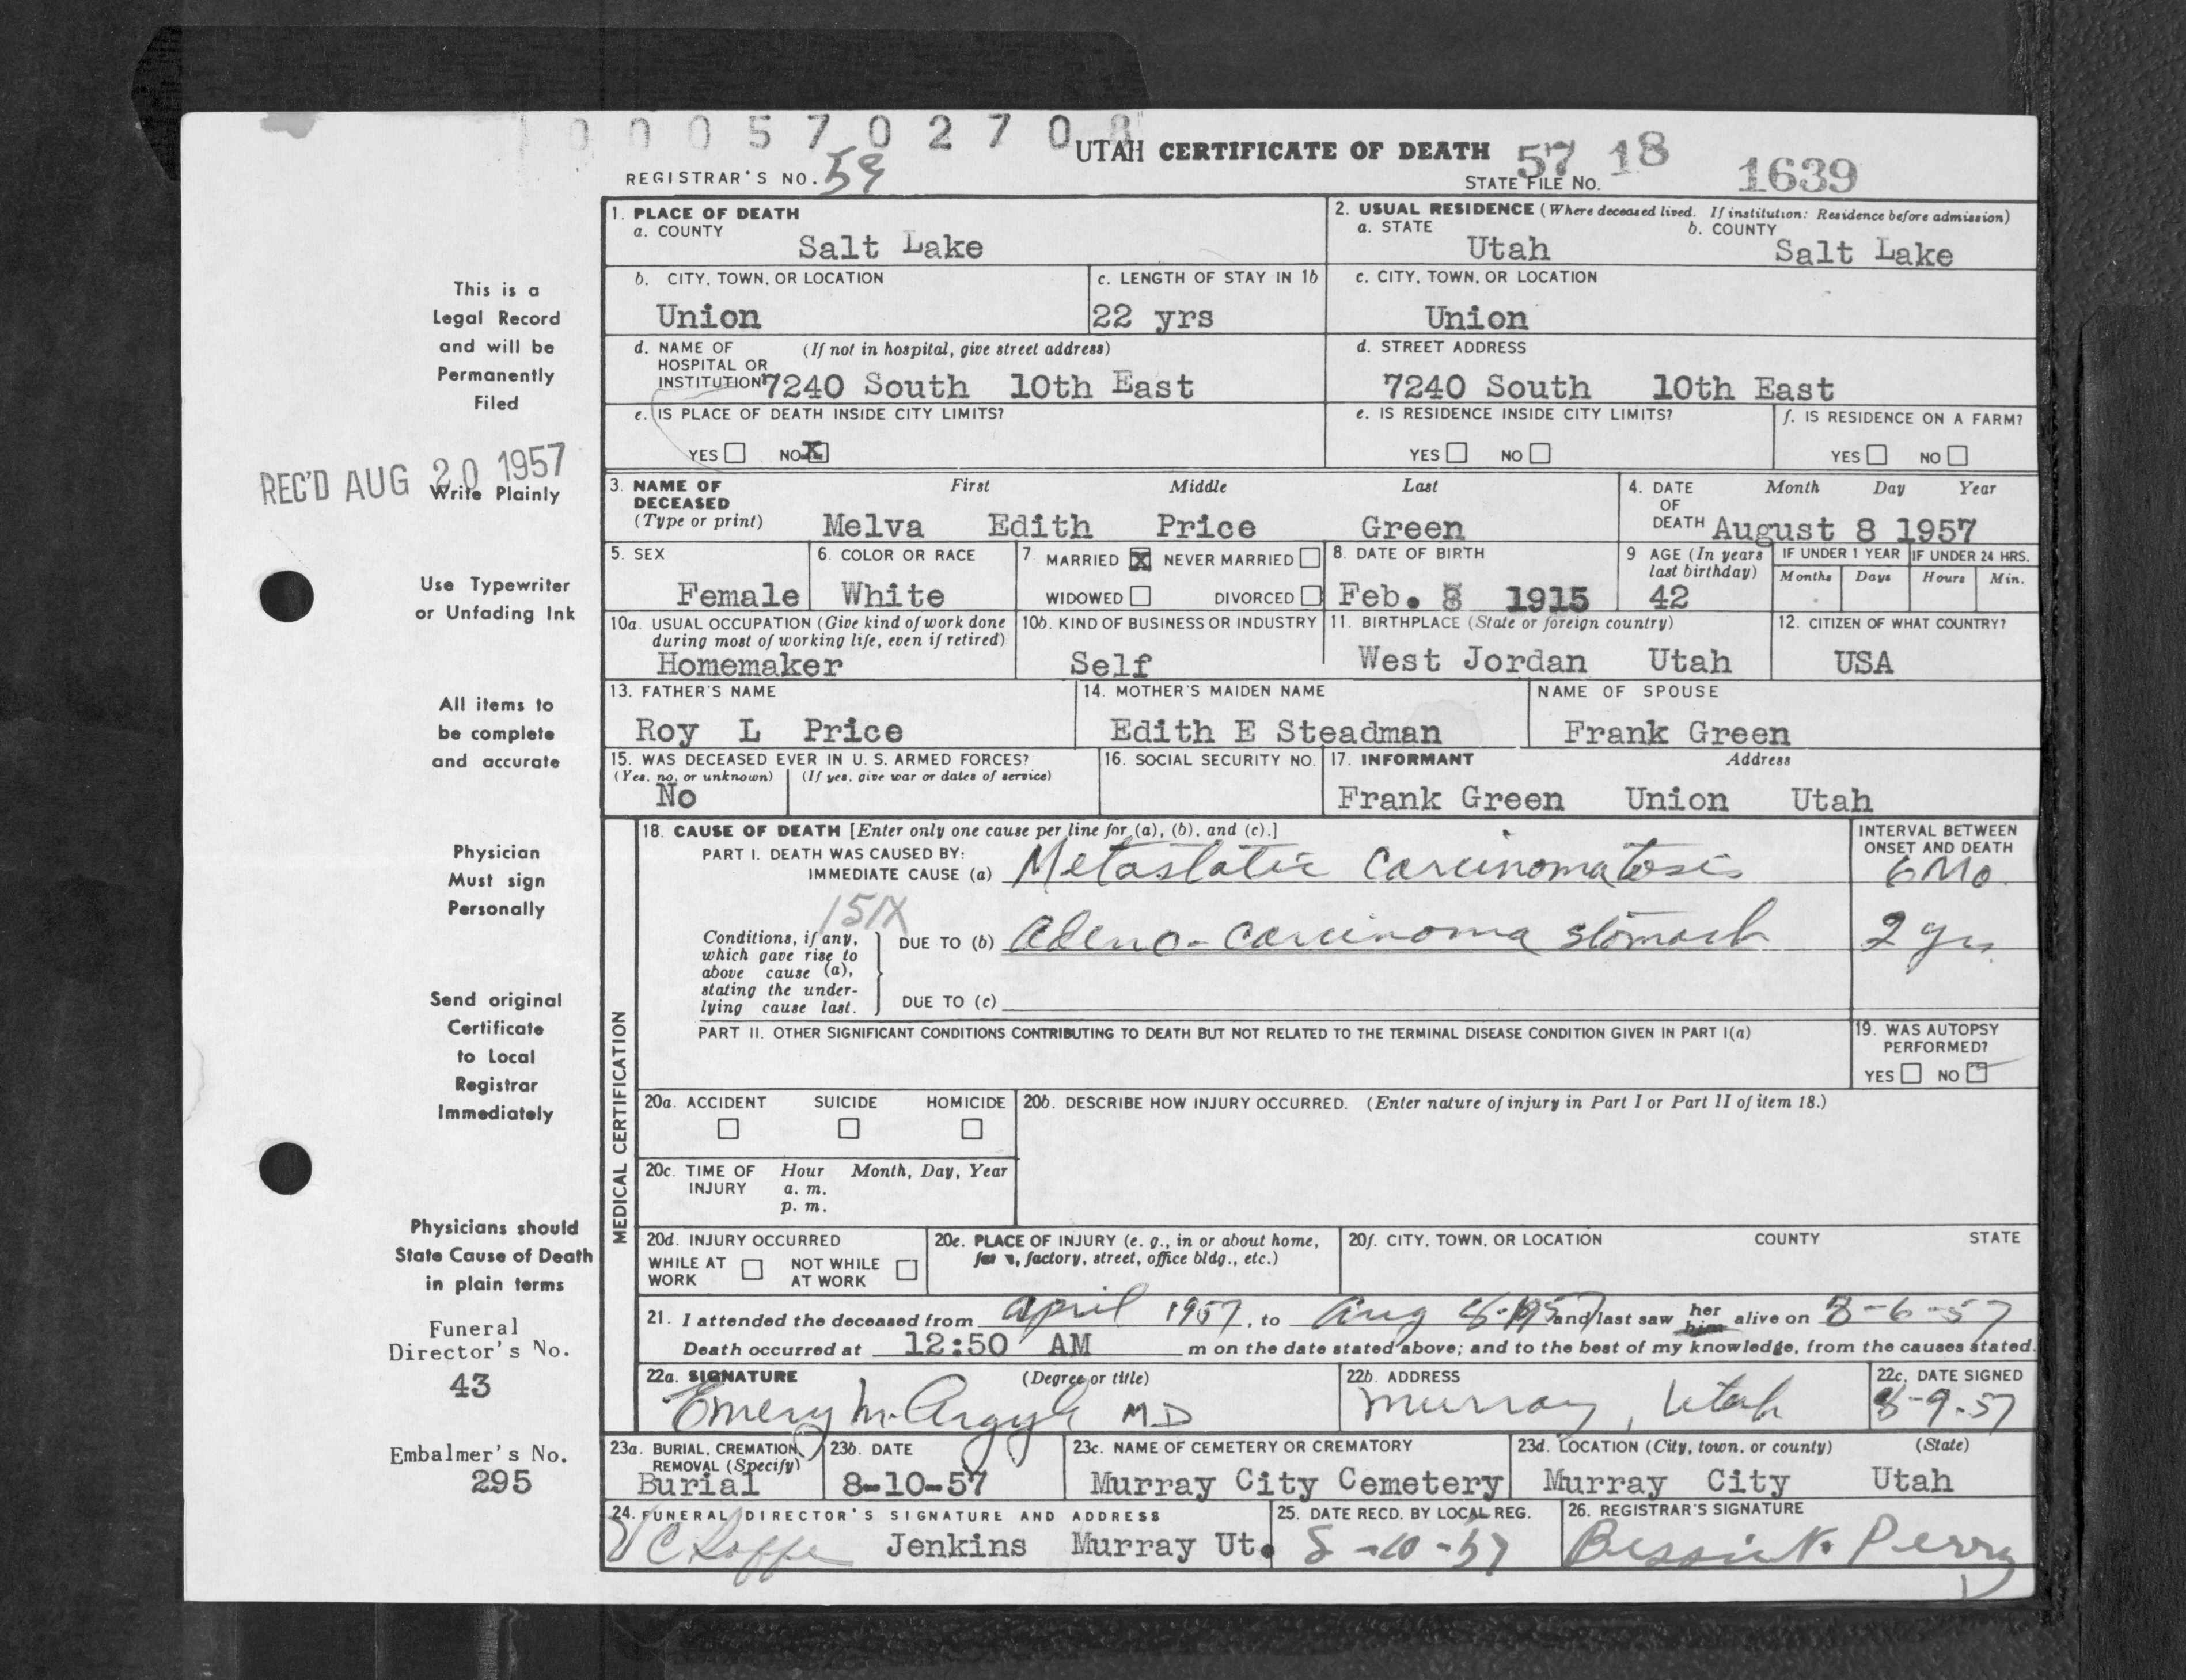 0 0 0 5 7 0 2 7 0 8
UTAH CERTIFICATE OF DEATH 57 18 1639
REGISTRAR'S NO. 59 STATE FILE NO.
1. PLACE OF DEATH
a. COUNTY
Salt Lake
2. USUAL RESIDENCE (Where deceased lived. If institution: Residence before admission)
a. STATE b. COUNTY
Utah Salt Lake
b. CITY, TOWN, OR LOCATION
Union
c. LENGTH OF STAY IN 1b
22 yrs
c. CITY, TOWN, OR LOCATION
Union
d. NAME OF (If not in hospital, give street address)
HOSPITAL OR
INSTITUTION 7240 South 10th East
d. STREET ADDRESS
7240 South 10th East
e. IS PLACE OF DEATH INSIDE CITY LIMITS?
YES NO X
e. IS RESIDENCE INSIDE CITY LIMITS?
YES NO
f. IS RESIDENCE ON A FARM?
YES NO
3. NAME OF First Middle Last
DECEASED
(Type or print) Melva Edith Price Green
4. DATE Month Day Year
OF
DEATH August 8 1957
5. SEX
Female
6. COLOR OR RACE
White
7. MARRIED X NEVER MARRIED
WIDOWED DIVORCED
8. DATE OF BIRTH
Feb. 8 1915
9 AGE (In years
last birthday)
42
IF UNDER 1 YEAR IF UNDER 24 HRS.
Months Days Hours Min.
10a. USUAL OCCUPATION (Give kind of work done
during most of working life, even if retired)
Homemaker
10b. KIND OF BUSINESS OR INDUSTRY
Self
11. BIRTHPLACE (State or foreign country)
West Jordan Utah
12. CITIZEN OF WHAT COUNTRY?
USA
13. FATHER'S NAME
Roy L Price
14. MOTHER'S MAIDEN NAME
Edith E Steadman
NAME OF SPOUSE
Frank Green
15. WAS DECEASED EVER IN U. S. ARMED FORCES?
(Yes, no, or unknown) (If yes, give war or dates of service)
No
16. SOCIAL SECURITY NO.
17. INFORMANT Address
Frank Green Union Utah
MEDICAL CERTIFICATION
18. CAUSE OF DEATH [Enter only one cause per line for (a), (b), and (c).]
PART I. DEATH WAS CAUSED BY:
IMMEDIATE CAUSE (a) Metastatic Carcinomatosis
INTERVAL BETWEEN
ONSET AND DEATH
6 Mo.
151X
Conditions, if any,
which gave rise to
above cause (a),
stating the under-
lying cause last.
DUE TO (b) Adeno-carcinoma stomach 2 yrs
DUE TO (c)
PART II. OTHER SIGNIFICANT CONDITIONS CONTRIBUTING TO DEATH BUT NOT RELATED TO THE TERMINAL DISEASE CONDITION GIVEN IN PART I(a)
19. WAS AUTOPSY
PERFORMED?
YES NO
20a. ACCIDENT SUICIDE HOMICIDE
20b. DESCRIBE HOW INJURY OCCURRED. (Enter nature of injury in Part I or Part II of item 18.)
20c. TIME OF Hour Month, Day, Year
INJURY a. m.
p. m.
20d. INJURY OCCURRED
WHILE AT NOT WHILE
WORK AT WORK
20e. PLACE OF INJURY (e. g., in or about home,
factory, street, office bldg., etc.)
20f. CITY, TOWN, OR LOCATION COUNTY STATE
21. I attended the deceased from April 1957, to Aug 8-1957 and last saw her him alive on 8-6-57
Death occurred at 12:50 AM m on the date stated above; and to the best of my knowledge, from the causes stated.
22a. SIGNATURE (Degree or title)
Emery M. Argyle MD
22b. ADDRESS
Murray, Utah
22c. DATE SIGNED
8-9-57
23a. BURIAL, CREMATION,
REMOVAL (Specify)
Burial
23b. DATE
8-10-57
23c. NAME OF CEMETERY OR CREMATORY
Murray City Cemetery
23d. LOCATION (City, town, or county) (State)
Murray City Utah
24. FUNERAL DIRECTOR'S SIGNATURE AND ADDRESS
Jenkins Murray Ut.
25. DATE RECD. BY LOCAL REG.
8-10-57
26. REGISTRAR'S SIGNATURE
Bessie N. Perry
This is a
Legal Record
and will be
Permanently
Filed
REC'D AUG 20 1957
Write Plainly
Use Typewriter
or Unfading Ink
All items to
be complete
and accurate
Physician
Must sign
Personally
Send original
Certificate
to Local
Registrar
Immediately
Physicians should
State Cause of Death
in plain terms
Funeral
Director's No.
43
Embalmer's No.
295